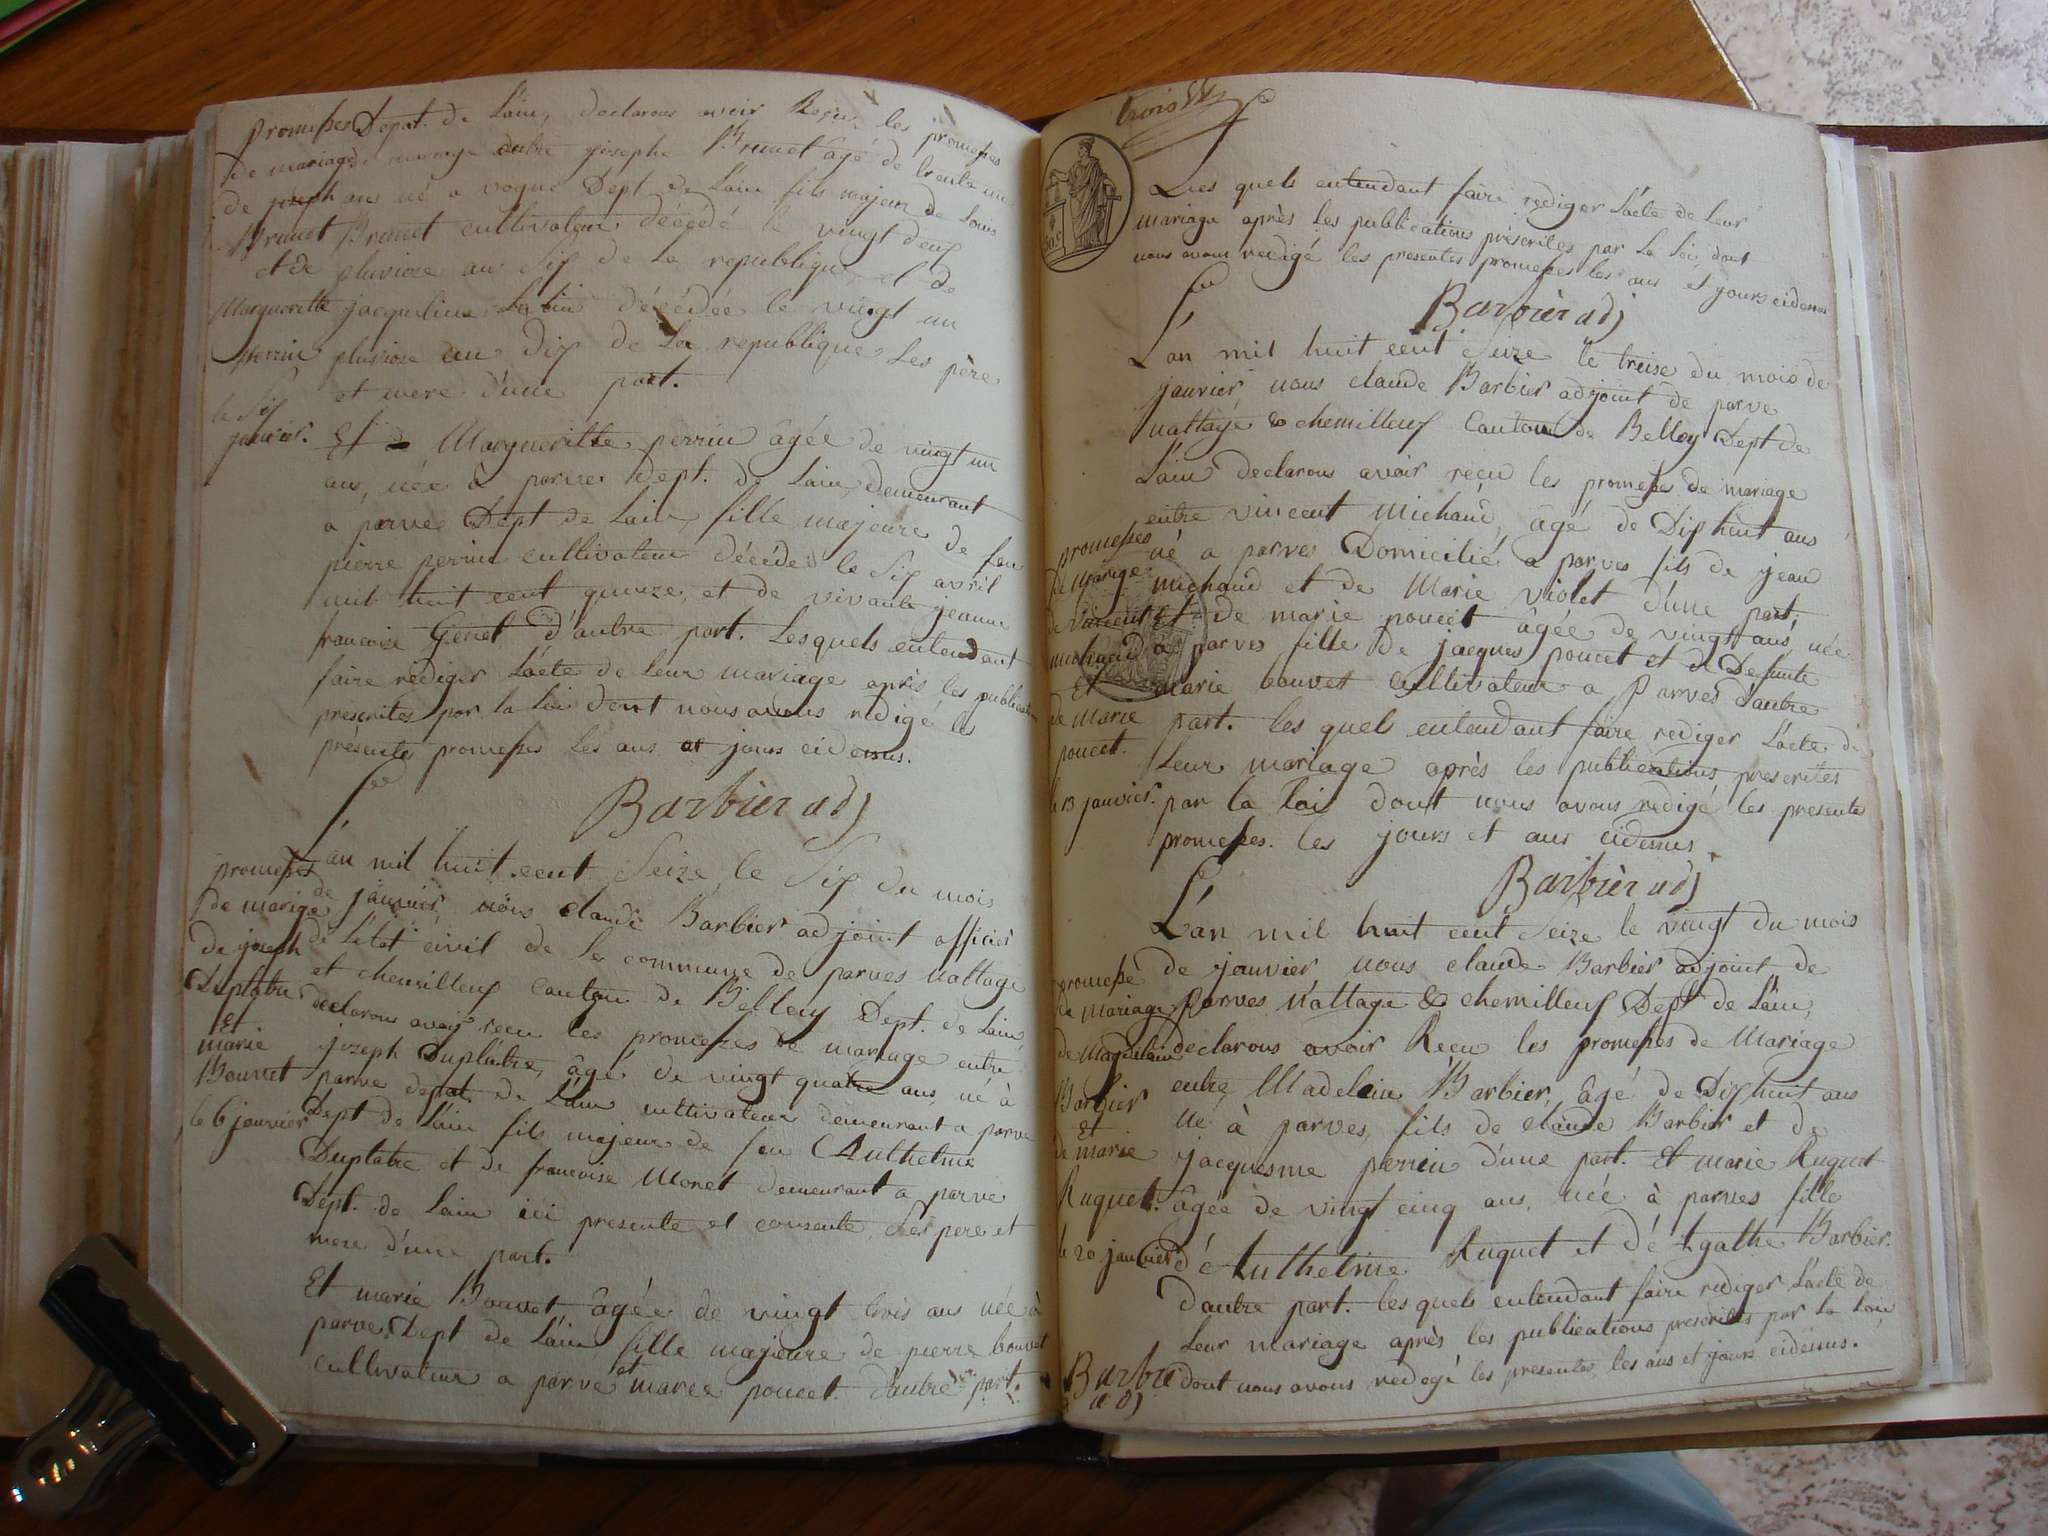 promesses Depat. de Lain, declarons avoir Reçu, les promesses
de mariage de mariage entre joseph Brunet âgé de trente un
de joseph ans né a vogne Dept de Lain fils majeur de Louis
Brunet Brunet cultivateur décédé le vingt deux
et de pluviose an Six de La republique et de
Marguerilte jacqueline décédée le vingt un
perrin pluviose an Dix de La republique Les père
et mere d'une part.
le Six
janvier.
Et de Marguerilte perrin âgée de vingt un
ans, née à parve dept. de Lain, demeurant
a parve Dept de Lain, fille majeure de feu
pierre perrin cultivateur décédé le Six avril
mil huit cent quinze, et de vivante jeanne
francoise Genet d'autre part. Lesquels entendant
faire rédiger L'acte de Leur mariage après les publication
prescrites par la loi dont nous avons rédigé les
présentes promesses Les ans et jours cidessus.
Barbier adj
L'an mil huit cent Seize le Six du mois
promesses
de janvier, nous claude Barbier adjoint officier
de marige
de joseph de L'etat civil de la commune de parves nattage
et chemilleux canton de Belley Dept. de Lain,
Duplatre declarons avoir recu les promesses de mariage entre
Et
marie joseph Duplâtre, âgé de vingt quatre ans, né à
Bouvet parve depat. de L'ain cultivateur demeurant a parve
le 6 janvier Dept de L'ain fils majeur de feu Anthelme
Duplatre et de francoise Monet demeurant a parve
Dept. de Lain ici presente et consente, Les pere et
mere d'une part.
Et marie Bouvet âgée de vingt trois ans née à
parve, Dept de L'ain fille majeure de pierre bouvet
cultivateur a parve et marie poucet. d'autre part.
trois
Les quels entendant faire rediger L'acte de Leur
mariage après Les publications prescrites par La loi, dont
nous avons redigé les presentes promesses les ans et jours cidessus
50 c
Barbièr adj
L'an mil huit cent Seize le treise du mois de
janvier, nous claude Barbier adjoint de parve
nattage & chemilleux Canton de Belley Dept de
L'ain declarons avoir reçu les promesses de mariage
entre vincent Michaud, âgé de Dix huit ans
promesses né a parves Domicilié a parves fils de jean
de Marige michaud et de Marie violet d'une part,
de Vincent Et de marie poucet âgée de vingt ans, née
michaud à parves fille de jacques poucet et de Defunte
Et marie bouvet cultivateur a Parves d'autre
de Marie part. les quels entendant faire rediger L'acte de
poucet. Leur mariage après les publications prescrites
le 13 janvier. par la loi dont nous avons redigé les presente
promesses. les jours et ans cidessus
Barbièr adj
L'an mil huit cent Seize le vingt du mois
promesse de janvier nous claude Barbier adjoint de
de Mariage parves Nattage & chemilleux Dept de L'ain,
de Magdelain declarons avoir Recu les promesses de Mariage
Barbier entre Madelein Barbier, âgé de Dix huit ans
Et né à parves, fils de claude Barbier et de
de marie jacquesme perrin d'une part. Et marie Ruquet
Ruquet. âgée de vingt cinq ans, née à parves fille
le 20 janvier d'é Anthelme Ruquet et d'é Agathe Barbier.
d'autre part. les quels entendant faire rediger L'acte de
Leur mariage après les publications prescrites par La Loi,
Barbie dont nous avons redigé les presentes, les ans et jours cidessus.
adj